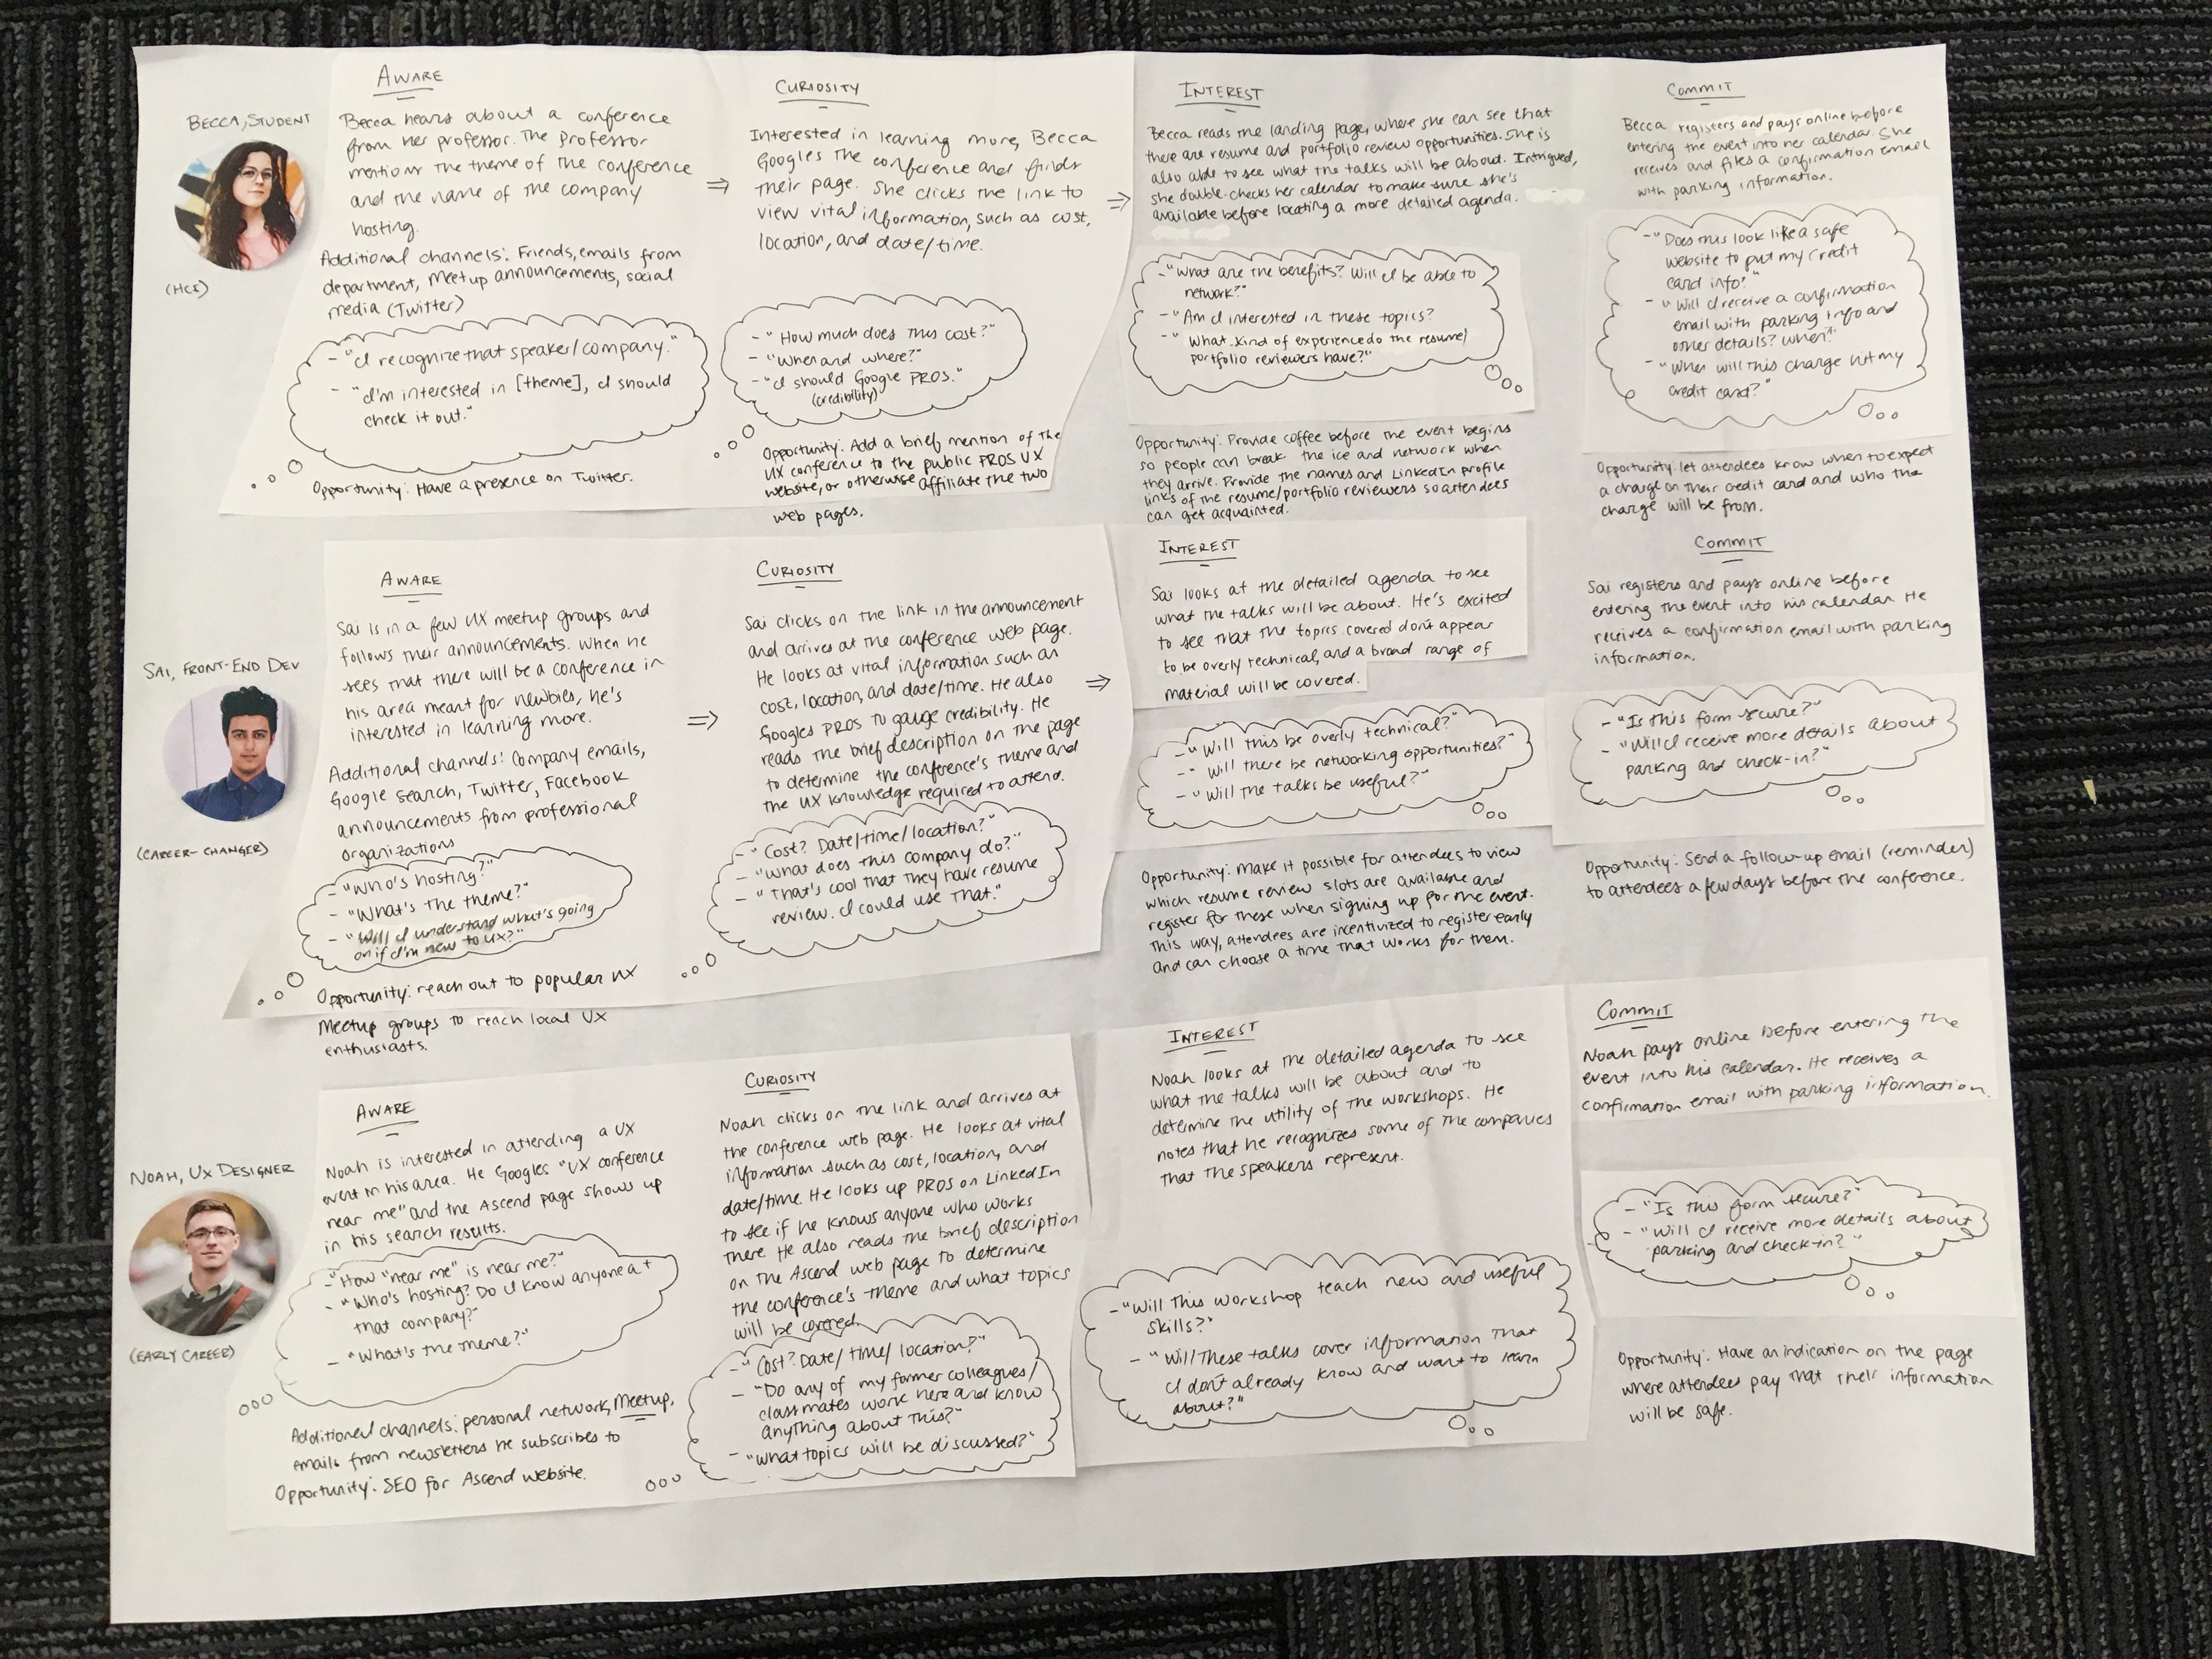 BECCA, STUDENT
(HCI)
AWARE
Becca hears about a conference
from her professor. The professor
mentions the theme of the conference
and the name of the company
hosting.
Additional channels: Friends, emails from
department, Meetup announcements, social
media (Twitter)
- "I recognize that speaker/company."
- "I'm interested in [theme], I should
check it out."
Opportunity: Have a presence on Twitter.
CURIOSITY
Interested in learning more, Becca
Googles the conference and finds
their page. She clicks the link to
view vital information, such as cost,
location, and date/time.
- "How much does this cost?"
- "When and where?"
- "I should Google PROS."
(credibility)
Opportunity: Add a brief mention of the
UX conference to the public PROS UX
website, or otherwise affiliate the two
web pages.
INTEREST
Becca reads the landing page, where she can see that
there are resume and portfolio review opportunities. She is
also able to see what the talks will be about. Intrigued,
she double-checks her calendar to make sure she's
available before locating a more detailed agenda.
- "What are the benefits? Will I be able to
network?"
- "Am I interested in these topics?
- "What kind of experience do the resume/
portfolio reviewers have?"
Opportunity: Provide coffee before the event begins
so people can break the ice and network when
they arrive. Provide the names and LinkedIn profile
links of the resume/portfolio reviewers so attendees
can get acquainted.
COMMIT
Becca registers and pays online before
entering the event into her calendar. She
receives and files a confirmation email
with parking information.
- "Does this look like a safe
website to put my credit
card info?"
- "Will I receive a confirmation
email with parking info and
other details? When?"
- "When will this charge hit my
credit card?"
Opportunity: let attendees know when to expect
a charge on their credit card and who the
charge will be from.
SAI, FRONT-END DEV
(CAREER-CHANGER)
AWARE
Sai is in a few UX meetup groups and
follows their announcements. When he
sees that there will be a conference in
his area meant for newbies, he's
interested in learning more.
Additional channels: Company emails,
Google search, Twitter, Facebook
announcements from professional
organizations
- "Who's hosting?"
- "What's the theme?"
- "Will I understand what's going
on if I'm new to UX?"
Opportunity: reach out to popular UX
Meetup groups to reach local UX
enthusiasts.
CURIOSITY
Sai clicks on the link in the announcement
and arrives at the conference web page.
He looks at vital information such as
cost, location, and date/time. He also
Googles PROS to gauge credibility. He
reads the brief description on the page
to determine the conference's theme and
the UX knowledge required to attend.
- "Cost? Date/time/location?"
- "What does this company do?"
- "That's cool that they have resume
review. I could use that."
INTEREST
Sai looks at the detailed agenda to see
what the talks will be about. He's excited
to see that the topics covered don't appear
to be overly technical, and a broad range of
material will be covered.
- "Will this be overly technical?"
- "Will there be networking opportunities?"
- "Will the talks be useful?"
Opportunity: Make it possible for attendees to view
which resume review slots are available and
register for these when signing up for the event.
This way, attendees are incentivized to register early
and can choose a time that works for them.
COMMIT
Sai registers and pays online before
entering the event into his calendar. He
receives a confirmation email with parking
information.
- "Is this form secure?"
- "Will I receive more details about
parking and check-in?"
Opportunity: Send a follow-up email (reminder)
to attendees a few days before the conference.
NOAH, UX DESIGNER
(EARLY CAREER)
AWARE
Noah is interested in attending a UX
event in his area. He Googles "UX conference
near me" and the Ascend page shows up
in his search results.
- "How "near me" is near me?"
- "Who's hosting? Do I know anyone at
that company?"
- "What's the theme?"
Additional channels: personal network, Meetup,
emails from newsletters he subscribes to
Opportunity: SEO for Ascend website.
CURIOSITY
Noah clicks on the link and arrives at
the conference web page. He looks at vital
information such as cost, location, and
date/time. He looks up PROS on LinkedIn
to see if he knows anyone who works
there. He also reads the brief description
on the Ascend web page to determine
the conference's theme and what topics
will be covered.
- "Cost? Date/time/location?"
- "Do any of my former colleagues/
classmates work here and know
anything about this?"
- "What topics will be discussed?"
INTEREST
Noah looks at the detailed agenda to see
what the talks will be about and to
determine the utility of the workshops. He
notes that he recognizes some of the companies
that the speakers represent.
- "Will this workshop teach new and useful
skills?"
- "Will these talks cover information that
I don't already know and want to learn
about?"
COMMIT
Noah pays online before entering the
event into his calendar. He receives a
confirmation email with parking information.
- "Is this form secure?"
- "Will I receive more details about
parking and check-in?"
Opportunity: Have an indication on the page
where attendees pay that their information
will be safe.